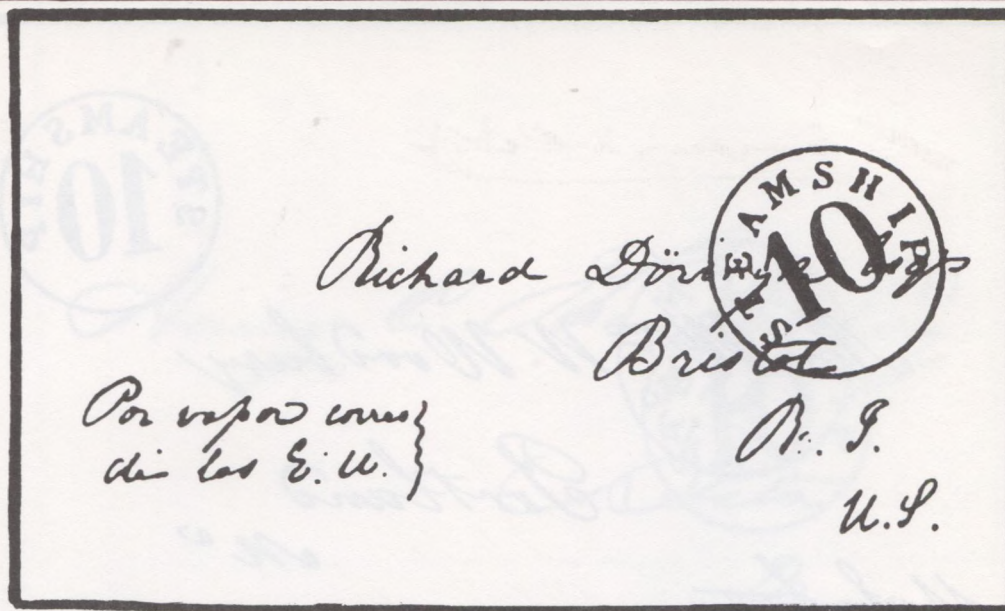 STEAMSHIP
10
Richard
Bristol
R. I.
U.S.
Por vapor corres
de los E. U.